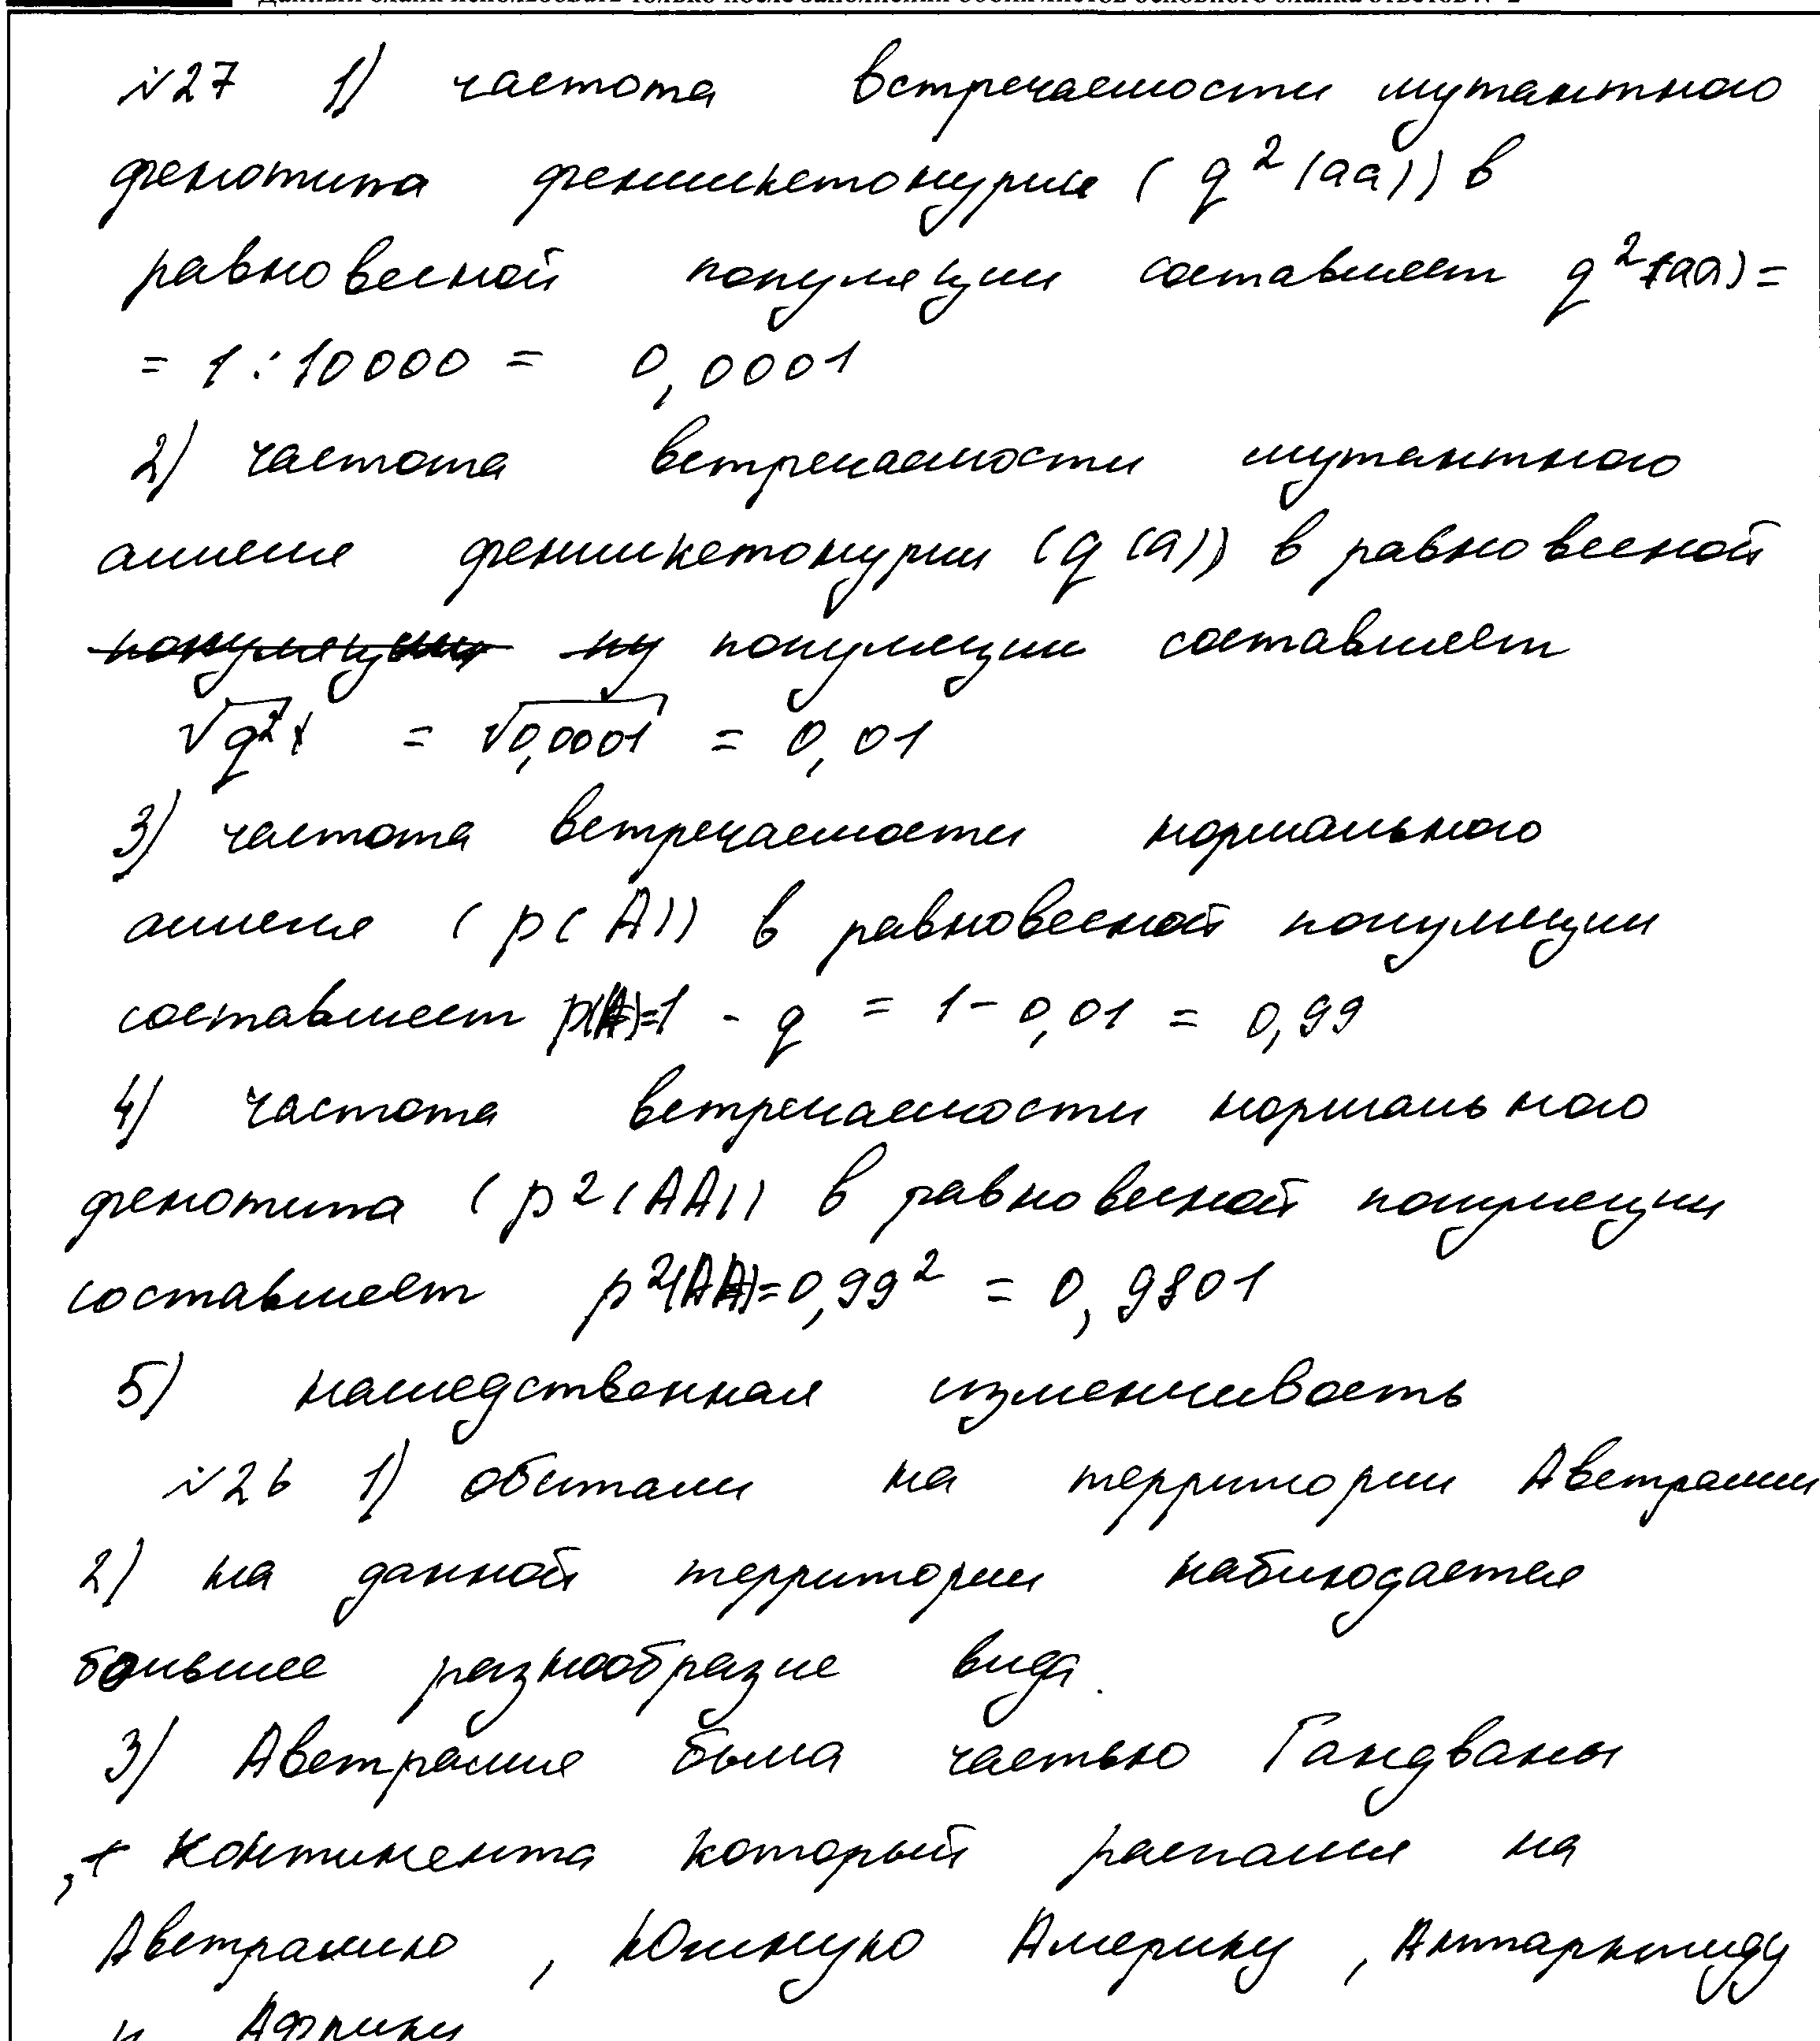 Данный бланк использовать только после заполнения обоих листов основного бланка ответов № 2
№27 1) частота встречаемости мутантного
фенотипа фенилкетонурии ( q² (aa)) в
равновесной популяции составляет q² (aa) =
= 1 : 10000 = 0,0001
2) частота встречаемости мутантного
аллеля фенилкетонурии (q (a)) в равновесной
популяции пу популяции составляет
√q² = √0,0001 = 0,01
3) частота встречаемости нормального
аллеля ( p( A)) в равновесной популяции
составляет p(A)=1 - q = 1 - 0,01 = 0,99
4) частота встречаемости нормального
фенотипа ( p2 (AA)) в равновесной популяции
составляет p²(AA)=0,99² = 0,9801
5) наследственная изменчивость
№26 1) обитали на территории Австралии
2) на данной территории наблюдается
большее разнообразие вида.
3) Австралия была частью Гандваны
, континента который распался на
Австралию , Южную Америку , Антарктиду
и Африку